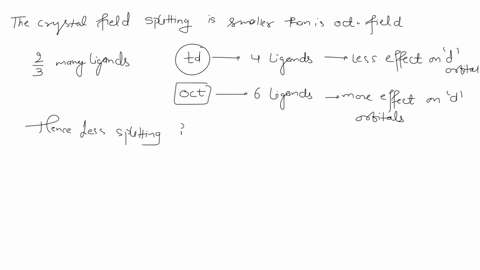 The crystal field splitting is smaller than is oct-field
2/3 many ligands td → 4 Ligands → Less effect on 'd' orbita
oct → 6 Ligands → more effect on 'd' orbitals
Hence Less spletting ?